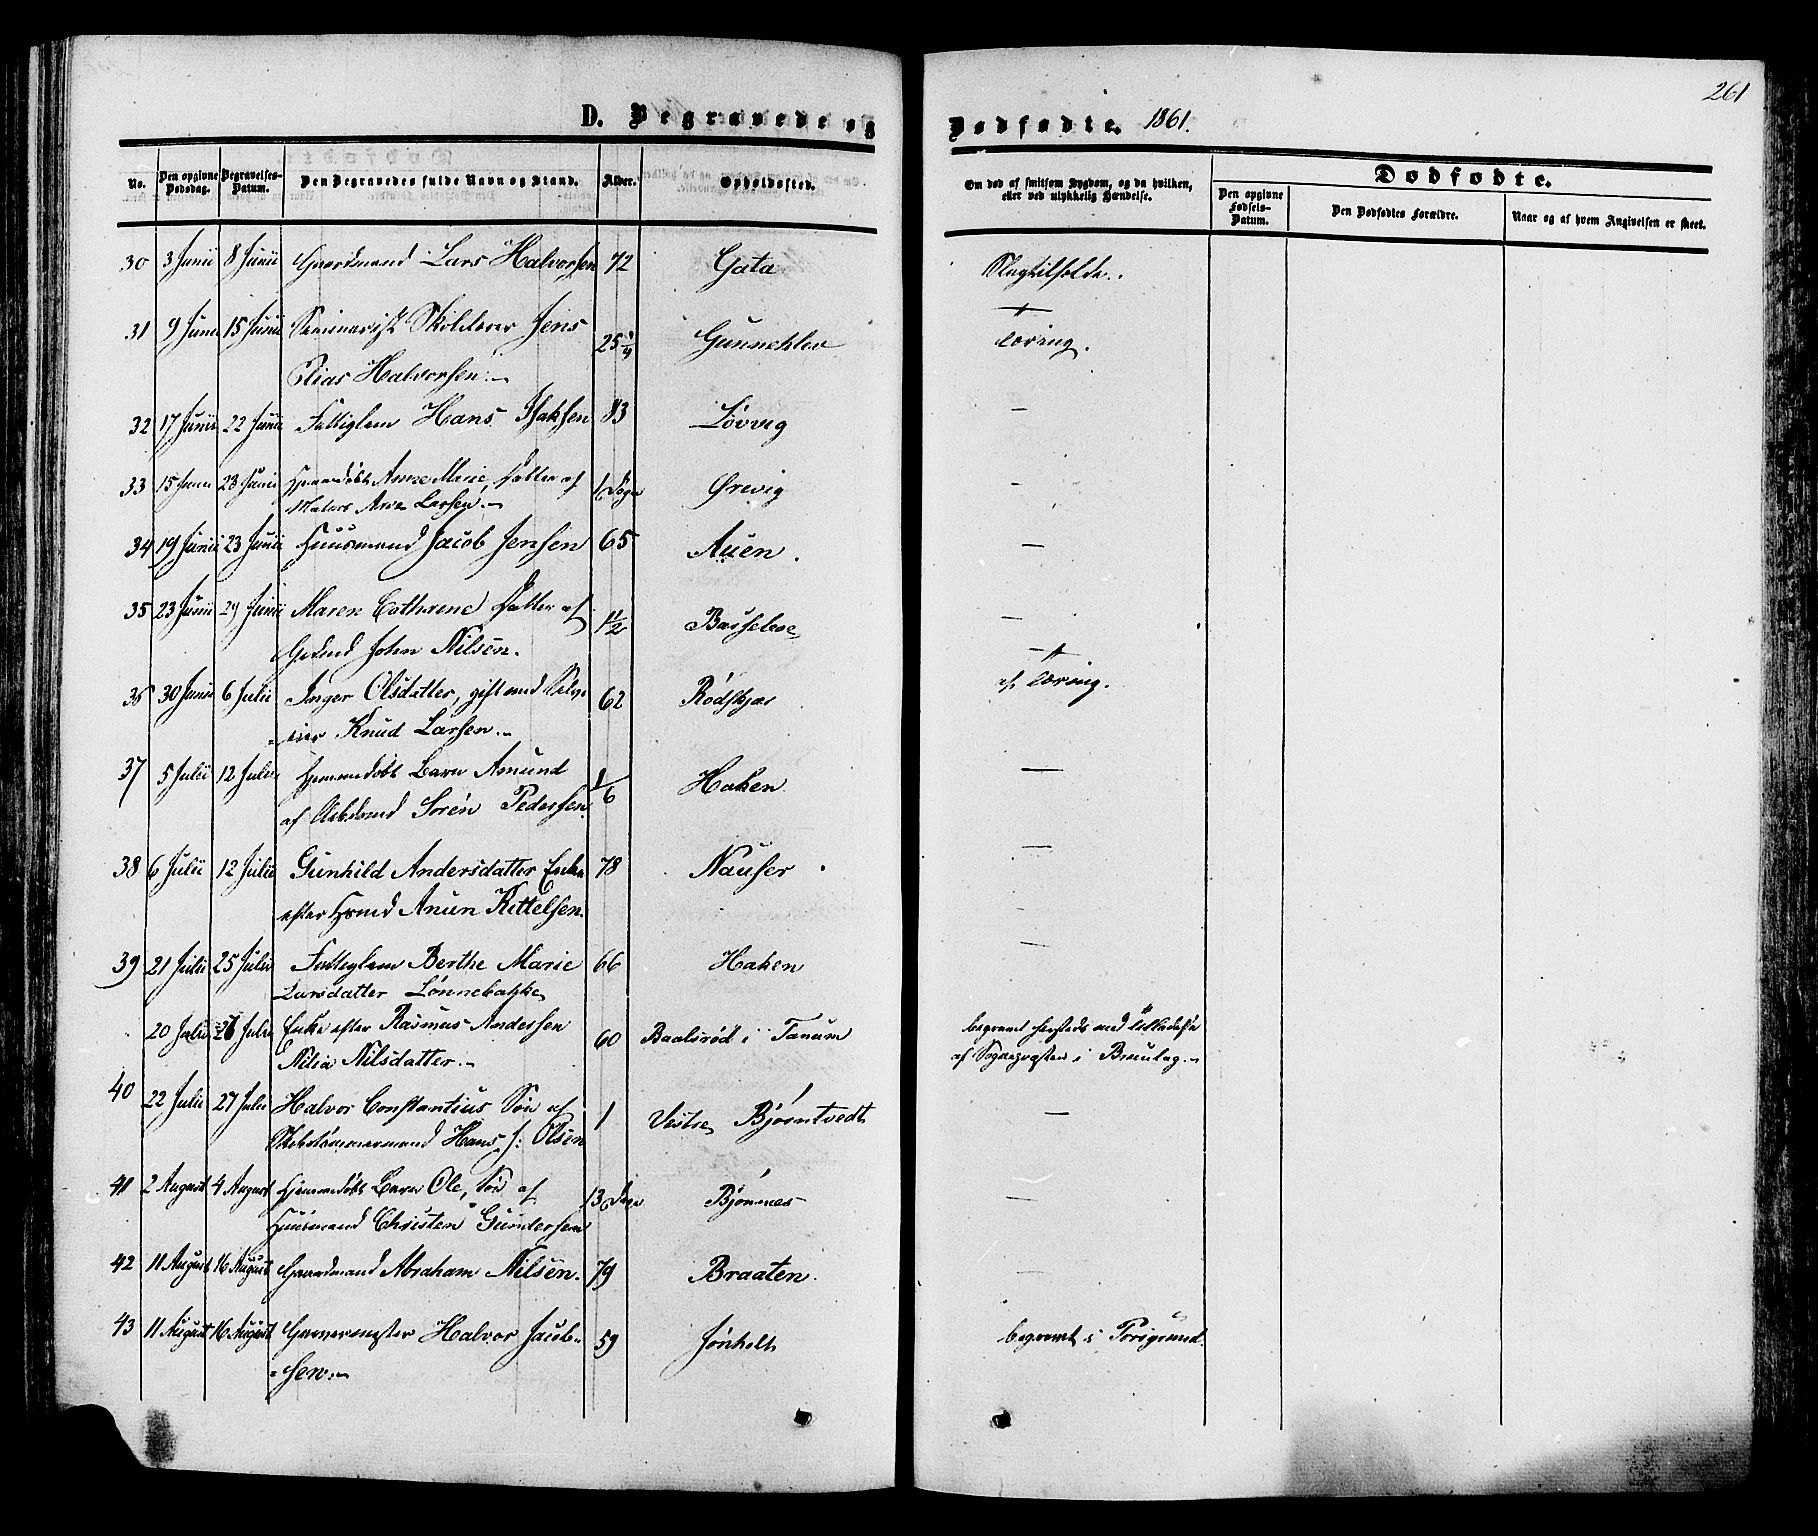 261
D. Begravede og Dødfødte. 1861.
No. Den opgivne Dødsdag. Begravelses-Datum. Den Begravedes fulde Navn og Stand. Alder. Opholdssted. Om død af smitsom Sygdom, og da hvilken, eller ved ulykkelig Hændelse. Dødfødte.
Den opgivne Fødsels-Datum. Den Dødfødtes Forældre. Naar og af hvem Angivelsen er skeet.
30 3 Junii 8 Junii Gaardmand Lars Halvorsen 72 Gata Slagtilfælde.
31 9 Junii 15 Junii Seminarist Skolelærer Jens 25 Gunneklev Tæring.
Elias Halvorsen.
32 17 Junii 22 Junii Fattiglem Hans Isaksen 83 Løvvig —
33 15 Junii 23 Junii Hjemmedøbt Anne Marie, Datter af Ørevig —
Larsen.
34 19 Junii 23 Junii Huusmand Jacob Jensen 65 Auen. —
35 23 Junii 29 Junii Maren Cathrene Datter af 1 1/2 Basseboe —
Gdmd John Nilsen.
36 30 Junii 6 Julii Inger Olsdatter, gift med Selv- 62 Rødskjær af Tæring.
eier Knud Larsen.
37 5 Julii 12 Julii Hjemmedøbt Barn Amund 1/6 Haken —
af Arbdmd Sørén Pedersen.
38 6 Julii 12 Julii Gunhild Andersdatter Enke 78 Nauser —
efter Hsmd Anun Kittelsen.
39 21 Julii 25 Julii Fattiglem Berthe Marie 66 Haken —
Larsdatter Lønnebakke
20 Julii 26 Julii Enke efter Rasmus Andersen 60 Baalsrød i Tanum begravet hersteds med Tilladelse
Nilia Nilsdatter. af Sognepresten i Brunlag.
40 22 Julii 27 Julii Halvor Constantius Søn af 1 Vestre Bjørntvedt —
Skibstømmermand Hans J: Olsen
41 2 August 4 August Hjemmedøbt Barn Ole, Søn af 13 Dage Bjønnes —
Huusmand Christen Gundersen
42 11 August 16 August Gaardmand Abraham Nilsen. 79 Braaten. —
43 11 August 16 August Garvermester Halvor Jacob- 59 Jønholt begravet i Porsgrund.
sen.